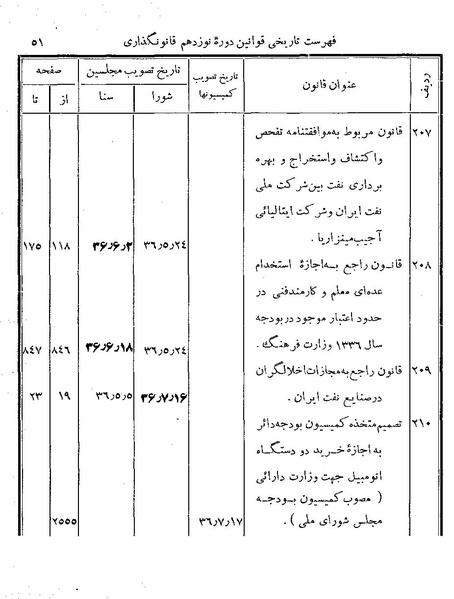 فهرست تاریخی قوانین دورهٔ نوزدهم قانونگذاری
۵۱
ردیف
عنوان قانون
تاریخ تصویب
کمیسیونها
تاریخ تصویب مجلسین
شورا
سنا
صفحه
از
تا
۲۰۷
قانون مربوط به موافقتنامه تفحص
و اکتشاف و استخراج و بهره
برداری نفت بین شرکت ملی
نفت ایران و شرکت ایتالیائی
آجیب مینراریا .
۳۶٫۵٫۲۴
۳۶٫۶٫۲
۱۱۸
۱۷۵
۲۰۸
قانون راجع به اجازهٔ استخدام
عده‌ای معلم و کارمند فنی در
حدود اعتبار موجود در بودجه
سال ۱۳۳۶ وزارت فرهنگ .
۳۶٫۵٫۲۴
۳۶٫۶٫۱۸
۸۴۶
۸۴۷
۲۰۹
قانون راجع به مجازات اخلالگران
در صنایع نفت ایران .
۳۶٫۷٫۱۶
۳۶٫۵٫۵
۱۹
۲۳
۲۱۰
تصمیم متخذه کمیسیون بودجه دائر
به اجازهٔ خرید دو دستگاه
اتومبیل جهت وزارت دارائی
( مصوب کمیسیون بودجه
مجلس شورای ملی ) .
۳۶٫۷٫۱۷
۲۵۵۵